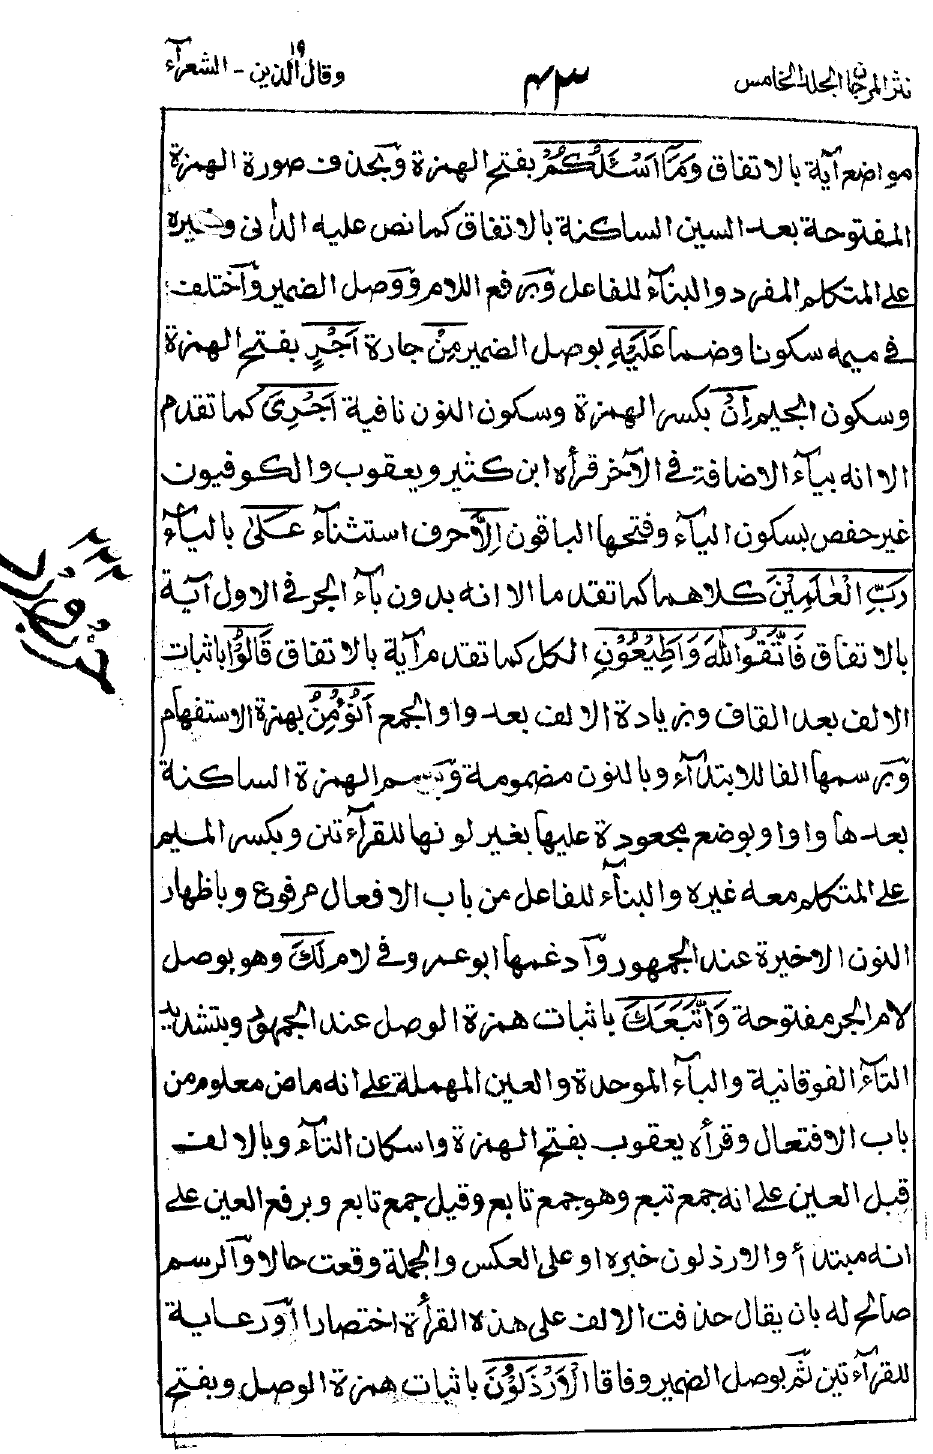 نثر المرجان المجلد الخامس
٤٣
وقال الذين ١٩ - الشعرآء
مواضع آية بالاتفاق وَمَآ اَسْـَٔلُكُمْ بفتح الهمزة وبحذف صورة الهمزة
المفتوحة بعد السين الساكنة بالاتفاق كما نص عليه الدانى وغيره
على المتكلم المفرد والبنآء للفاعل وبرفع اللام ووصل الضمير واختلف
فى ميمه سكونا وضما عَلَيْهِ بوصل الضمير مِنْ جارة اَجْرٍ بفتح الهمزة
وسكون الجيم اِنْ بكسر الهمزة وسكون النون نافية اَجْرِىَ كما تقدم
الا انه بيآء الاضافة فى الآخر قرأه ابن كثير ويعقوب والكوفيون
غير حفص بسكون اليآء وفتحها الباقون اِلَّا حرف استثنآء عَلٰى باليآء
رَبِّ الْعٰلَمِيْنَ كلاهما كما تقدما الا انه بدون بآء الجر فى الاول آية
بالاتفاق فَاتَّقُوا اللّٰهَ وَاَطِيْعُوْنِ الكل كما تقدم آية بالاتفاق قَالُوْٓا باثبات
الالف بعد القاف وبزيادة الالف بعد واو الجمع اَنُؤْمِنُ بهمزة الاستفهام
وبرسمها الفا للابتدآء وبالنون مضمومة وبرسم الهمزة الساكنة
بعدها واوا وبوضع مجعودة عليها بغير لونها للقرآءتين وبكسر الميم
على المتكلم معه غيره والبنآء للفاعل من باب الافعال مرفوع وباظهار
النون الاخيرة عند الجمهور وآدغمها ابو عمرو فى لام لَكَ وهو بوصل
لام الجر مفتوحة وَاتَّبَعَكَ باثبات همزة الوصل عند الجمهور وبتشديد
التآء الفوقانية والبآء الموحدة والعين المهملة على انه ماض معلوم من
باب الافتعال وقرأه يعقوب بفتح الهمزة واسكان التآء وبالالف
قبل العين على انه جمع تبع وهو جمع تابع وقيل جمع تابع وبرفع العين على
انه مبتدأ والارذلون خبره او على العكس والجملة وقعت حالا والرسم
صالح له بان يقال حذفت الالف على هذه القرأة اختصارا اورعاية
للقرآءتين ثم بوصل الضمير وفاقا الْاَرْذَلُوْنَ باثبات همزة الوصل وبفتح